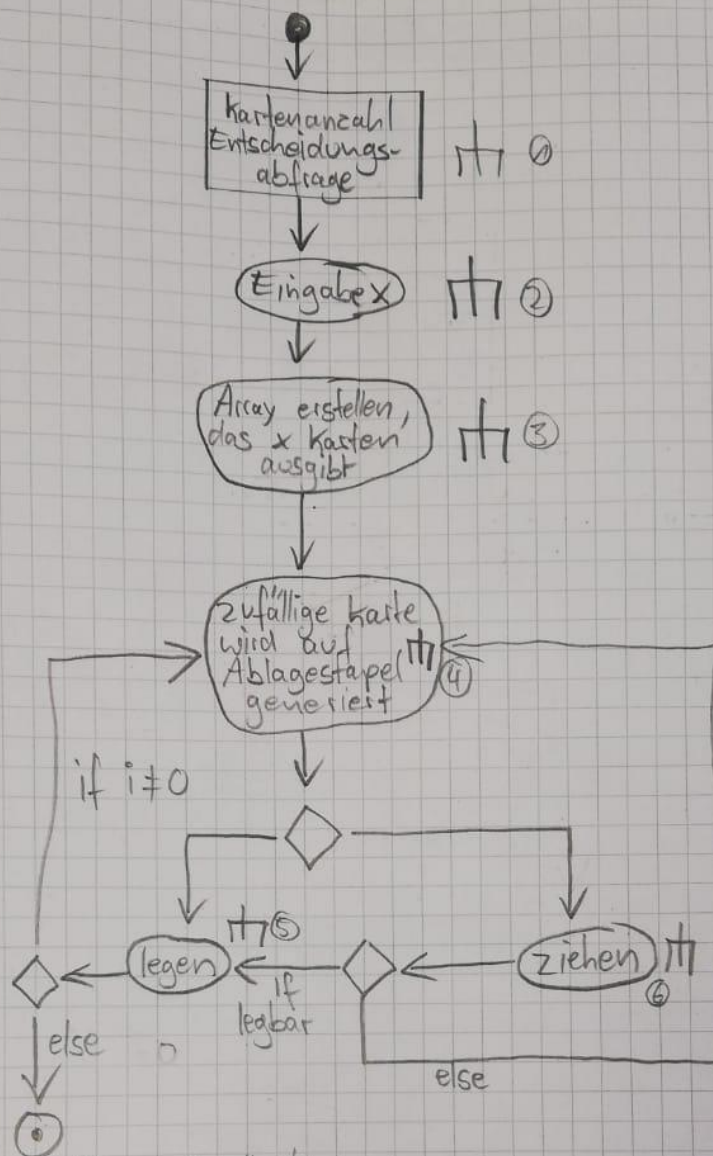 Kartenanzahl
Entscheidungs-
abfrage
1
Eingabe x
2
Array erstellen,
das x Karten
ausgibt
3
zufällige Karte
wird auf
Ablagestapel
generiert
4
if i ≠ 0
legen
5
if
legbar
ziehen
6
else
else